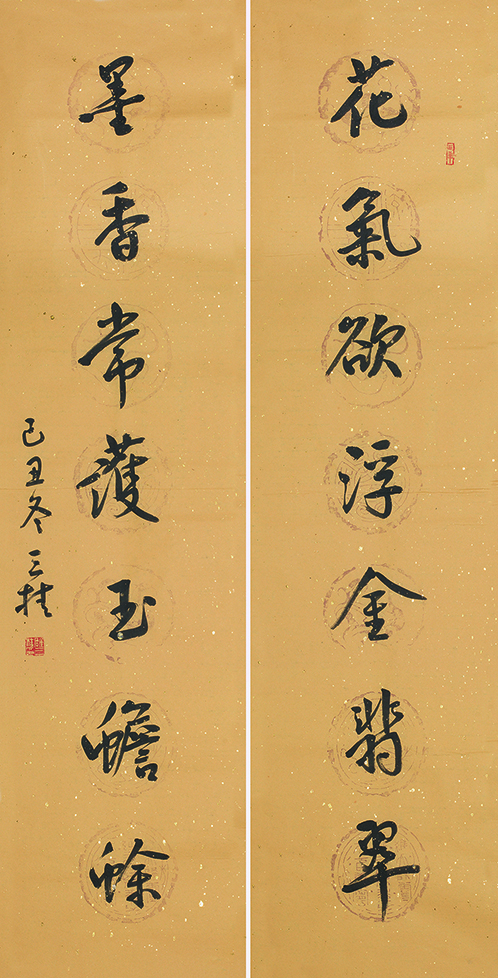 花氣欲浮金翡翠
墨香常護玉蟾蜍
己丑冬三桂